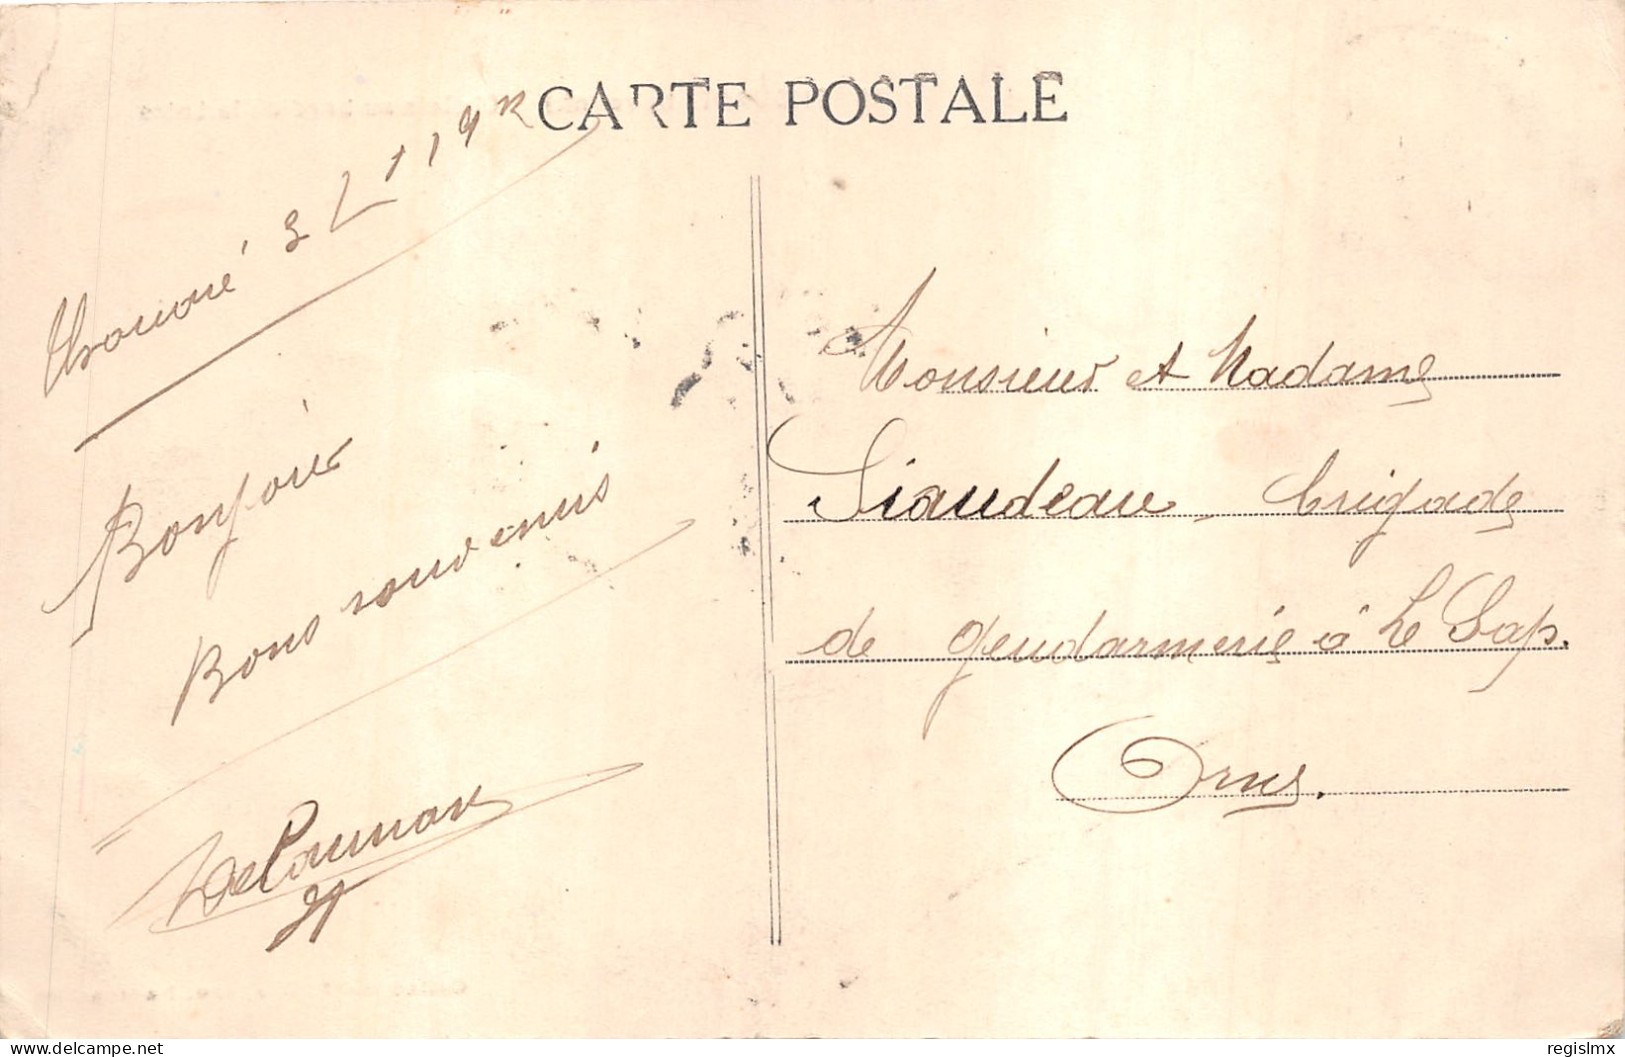 CARTE POSTALE
Thouaré
Bonjour
Bons souvenirs
Monsieur et Madame
Siaudeau, brigade
de gendarmerie à Le Sap.
Orne.
delcampe.net
regislmx